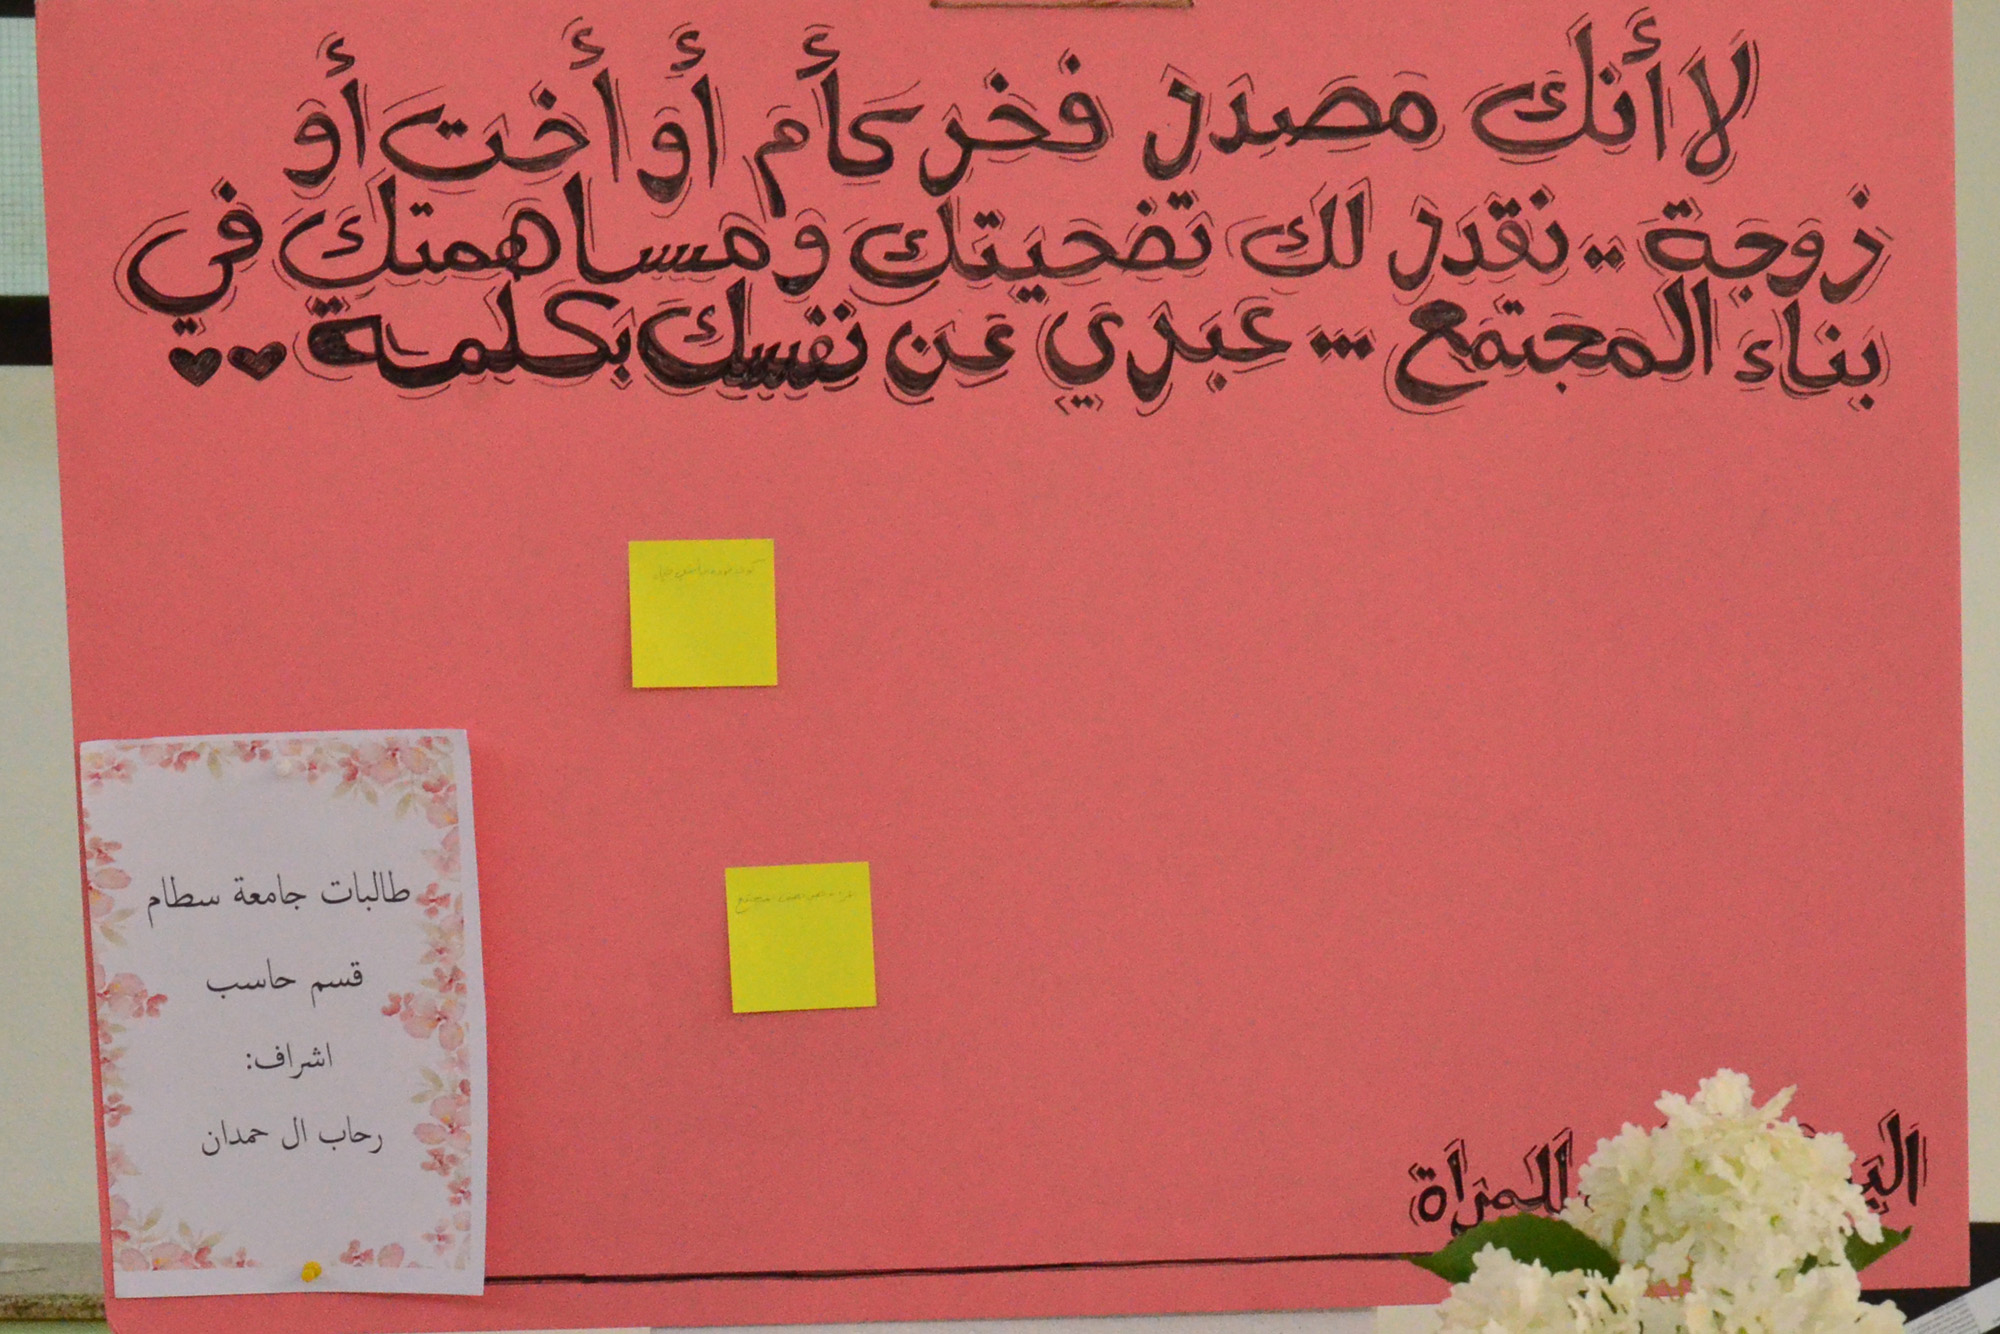 لا أنك مصدر فخر كأم أو أخت أو
زوجة .. نقدر لك تضحيتك ومساهمتك في
بناء المجتمع ... عبري عن نفسك بكلمة ..
طالبات جامعة سطام
قسم حاسب
اشراف:
رحاب ال حمدان
للمرأة